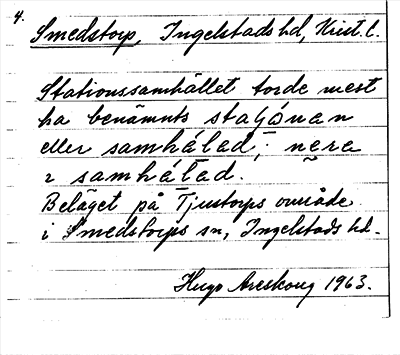 4.
Smedstorp, Ingelstads hd, Krist. l.
Stationssamhället torde mest
ha benämnts staʃónan
eller samhálad; nera
ɪ samhálad.
Beläget på Tjustorps område
i Smedstorps sn, Ingelstads hd.
Hugo Areskoug 1963.